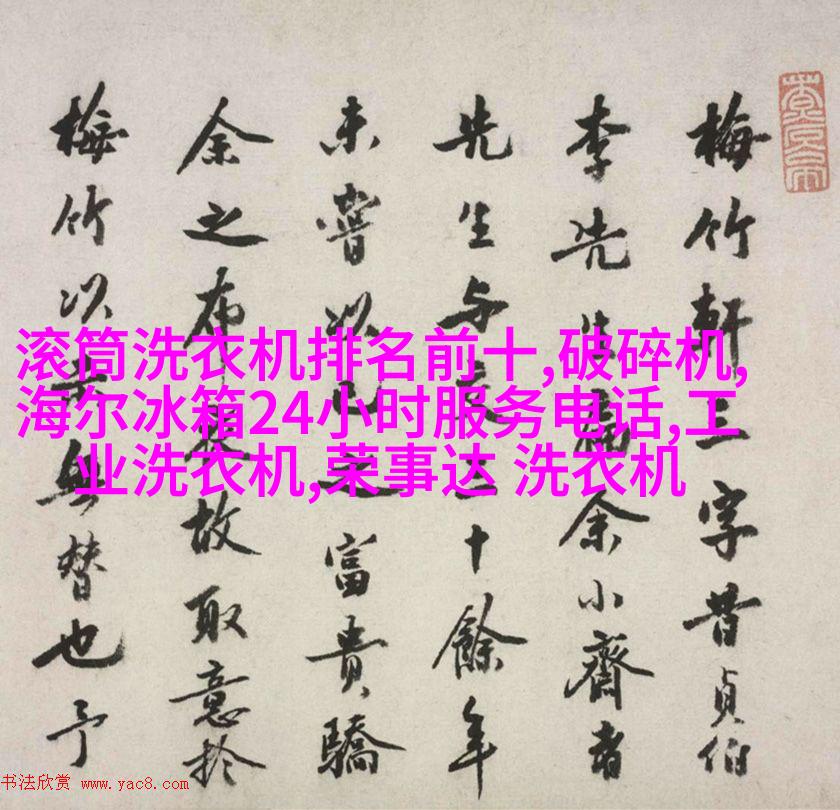 梅竹軒三字昔貞伯
李先生為余小齋書
先生与交二十餘年
未嘗以己之富貴驕
余之布故取意於
梅竹以示無替也予
滚筒洗衣机排名前十,破碎机,
海尔冰箱24小时服务电话,工
业洗衣机,荣事达 洗衣机
书法欣赏 www.yac8.com